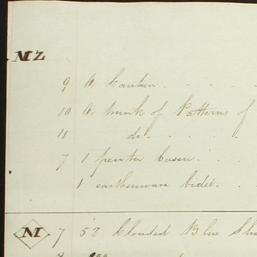 MZ
9 A Canteen . . . .
10 A trunk of Patterns of
11 do . . .
7 1 pewter Basin . . .
1 earthenware bidet . .
M 7 52 Clouded Blue